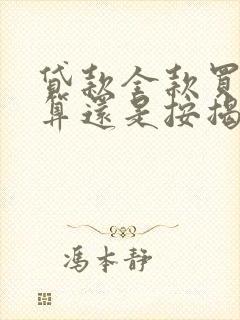 貸款全款買
算還是按揭
馮本靜